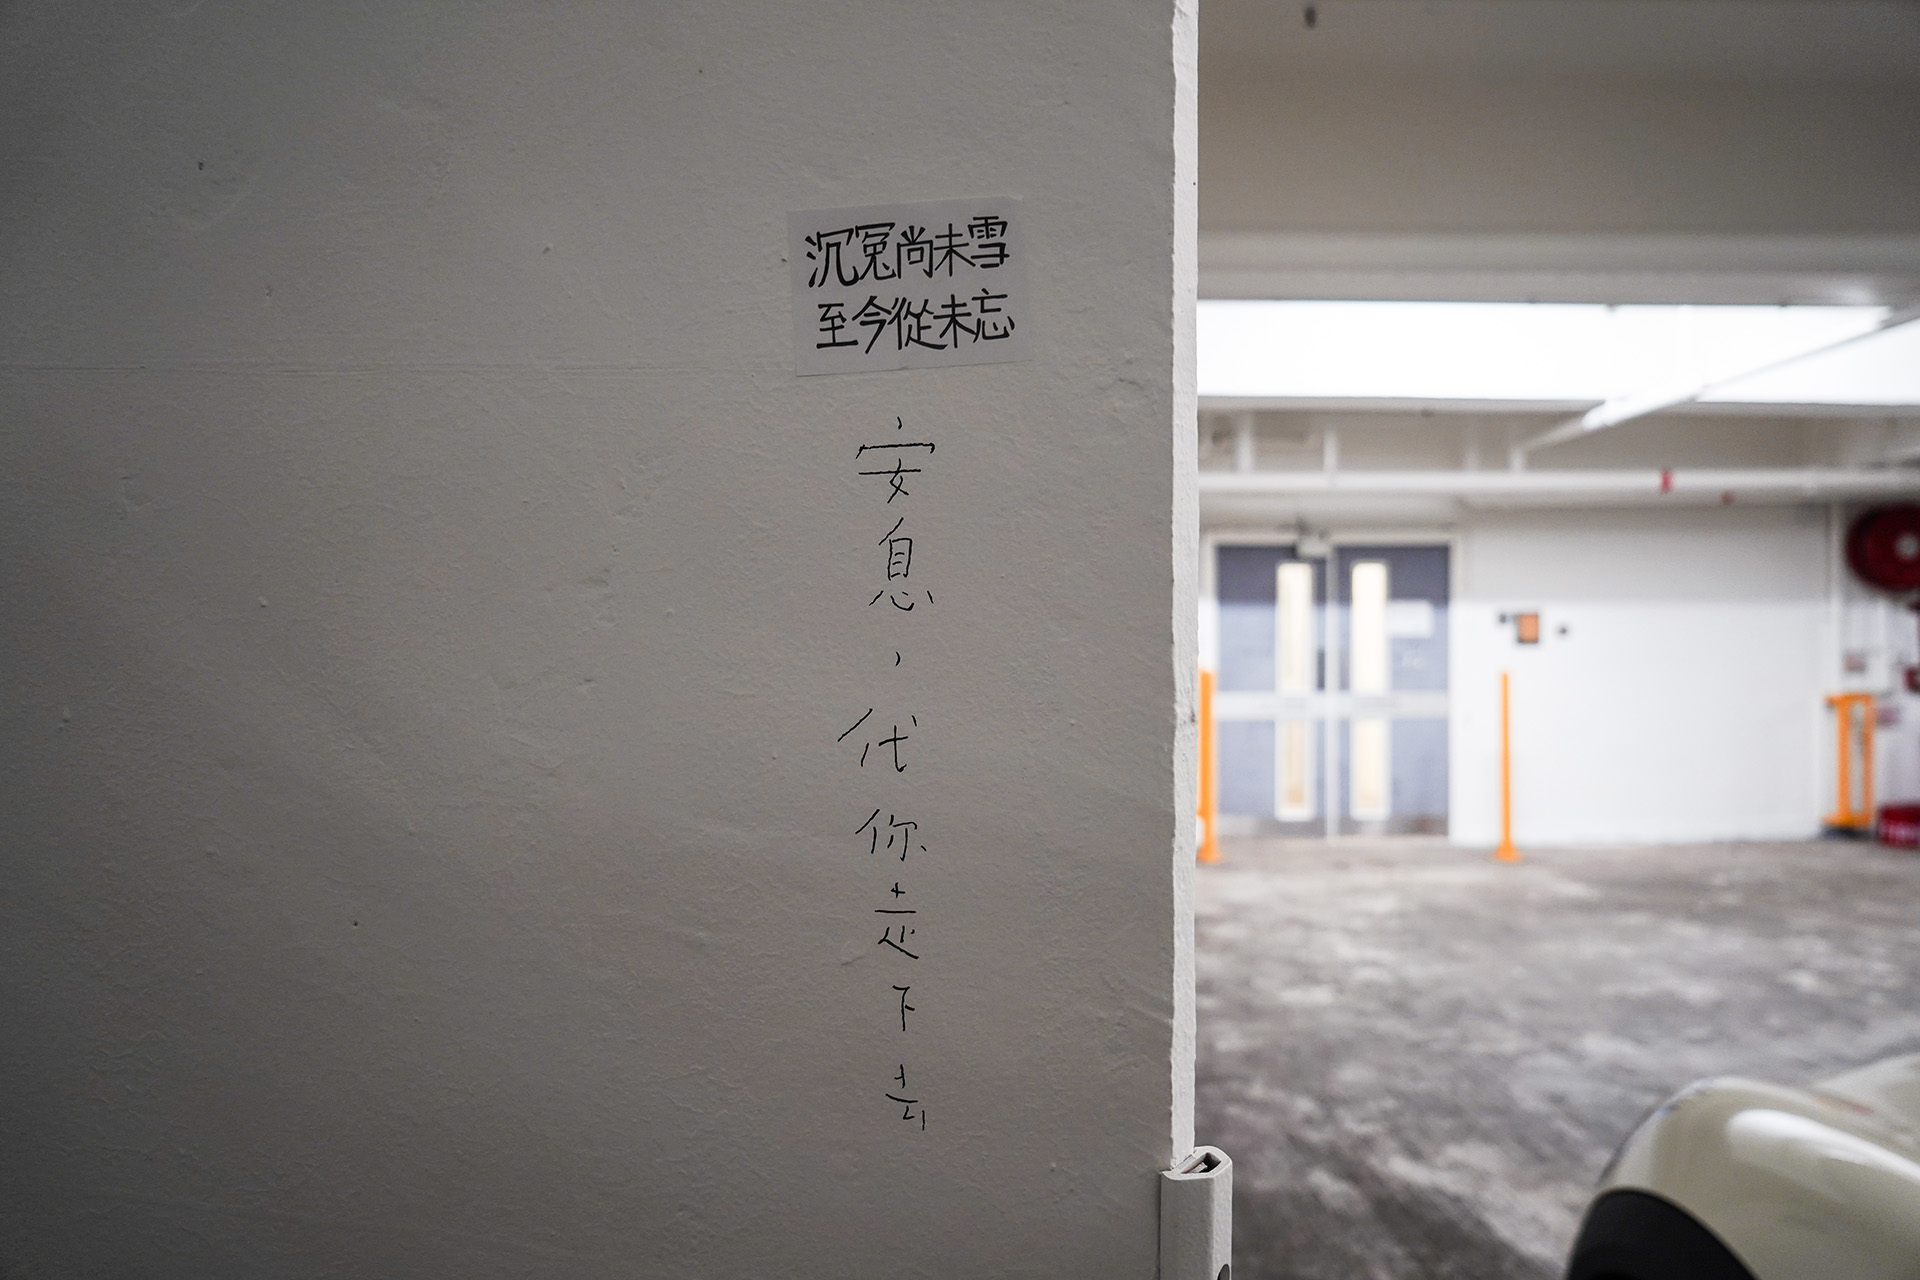 沉冤尚未雪
至今從未忘
安息，代你走下去